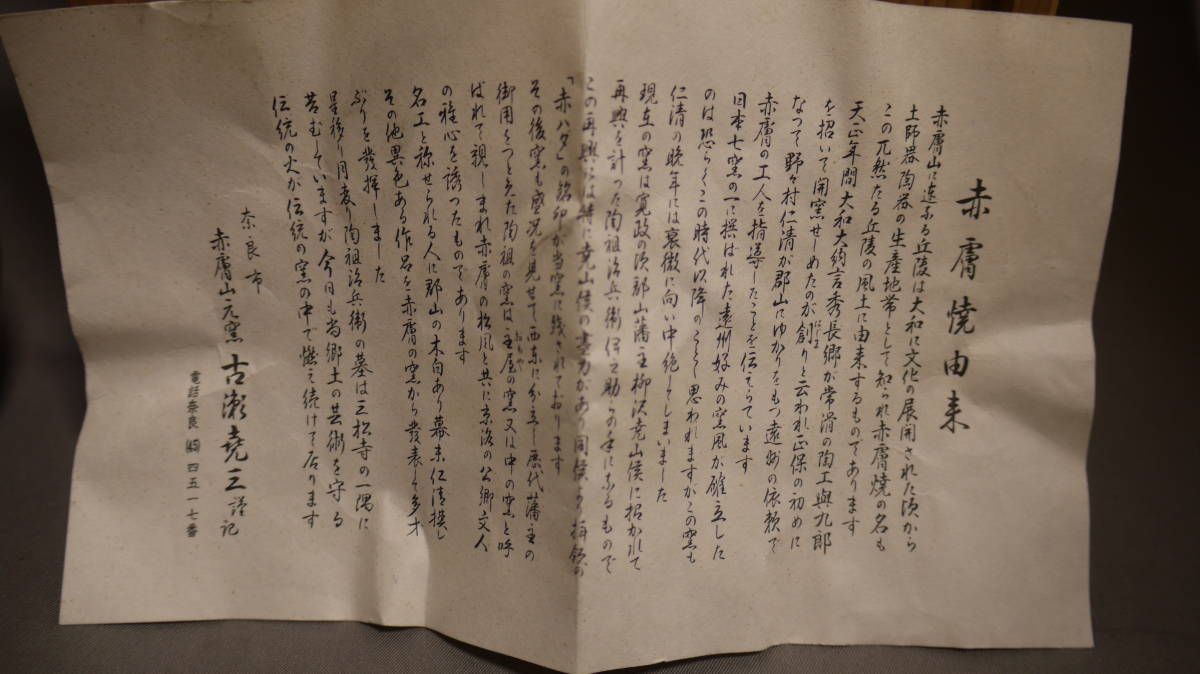 赤膚焼由来
赤膚山に連なる丘陵は大和に文化の展開された頃から
土師器陶器の生産地帯として知られ赤膚焼の名も
この兀然たる丘陵の風土に由来するものであります
天正年間大和大納言秀長郷が常滑の陶工與九郎
を招いて開窯せしめたのが創りと云われ正保の初めに
はじま
なつて野々村仁清が郡山にゆかりをもつ遠州の依頼で
赤膚の工人を指導したことを伝えています
日本七窯の一に撰ばれた遠州好みの窯風が確立した
のは恐らくこの時代以降のことゝ思われますがこの窯も
仁清の晩年には衰微に向い中絶してしまいました
現在の窯は寛政の頃郡山藩主柳沢尭山侯に招かれて
再興を計つた陶祖治兵衛伊之助らの手になるもので
この再興には特に尭山侯の書力があり同侯より拝領の
「赤ハダ」の銘印が当窯に残されております
その後窯も盛況を見せて西東に分立し歴代藩主の
御用をつとめた陶祖の窯は主屋の窯又は中の窯と呼
おもや
ばれて親しまれ赤膚の松風と共に京洛の公卿文人
の雅心を誘つたものであります
名工と称せられる人に郡山の木白あり幕末仁清模し
その他異色ある作品を赤膚の窯から發表し多才
ぶりを發揮しました
星移り月変り陶祖治兵衛の墓は三松寺の一隅に
苔むしていますが今日も尚郷土の芸術を守る
伝統の火が伝統の窯の中で燃え続けて居ります
奈良市
赤膚山元窯 古瀬尭三 謹記
電話奈良 四五一七番